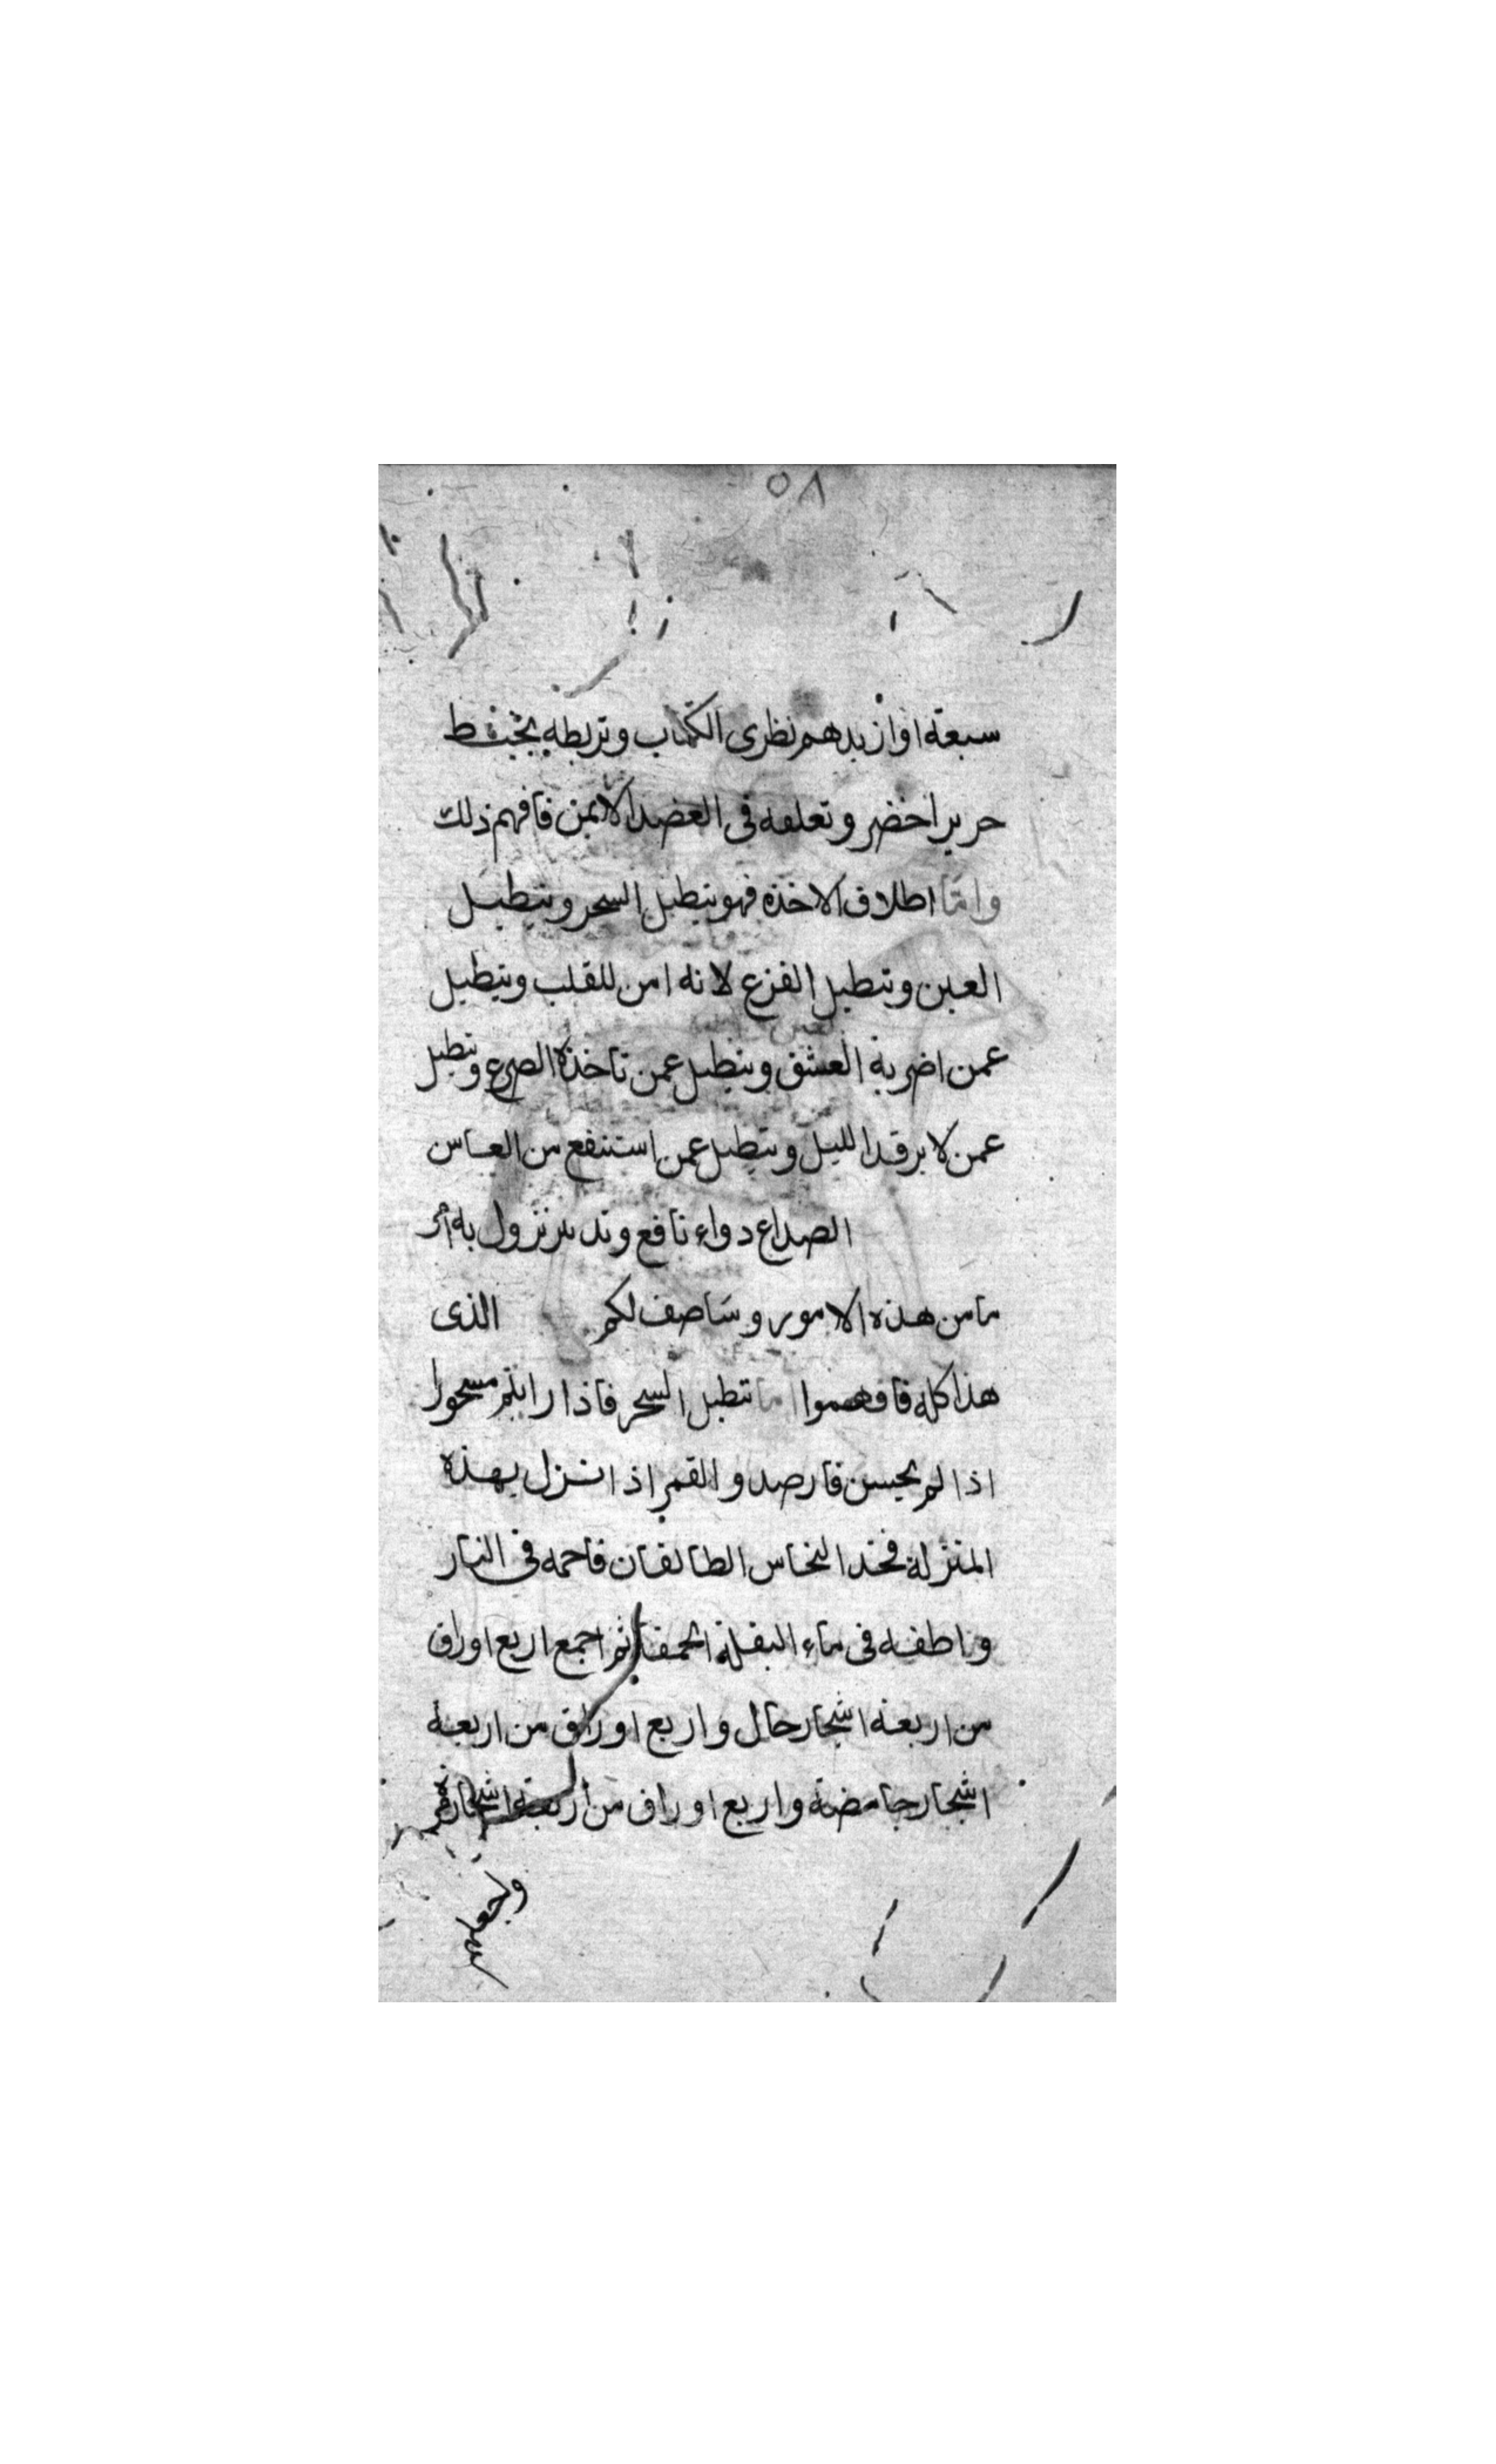 ٥٨
سبعة اوان بدهم نظرى الكتاب وتربطه بخيط
حرير اخضر وتعلقه فى العضد الايمن فافهم ذلك
واما اطلاق الاخذه فهو يتطبل السحر ويتطبل
العين وتتطبل الفزع لانه امن للقلب ويتطبل
عمن اضر به العشق ويتطبل عمن تاخذه الصرع ويتطبل
عمن لا يرقد الليل ويتطبل عمن استنفع من العاس
الصداع دواء نافع وتدبير نزول به امر
ما من هذه الامور وساصف لكم الذى
هذا كله فافهموا اما تتطبل السحر فاذا رايتم مسحورا
اذا لم يحبس فارصدو القمر اذا نزل بهذه
المنزلة فخد النحاس الطالقان فاحمه فى النار
واطفه فى ماء البقلة الحمقا ثم اجمع اربع اوراق
من اربعة اشجار حال واربع اوراق من اربعة
اشجار حامضة واربع اوراق من اربعة اشجار مرة
واجعلهم